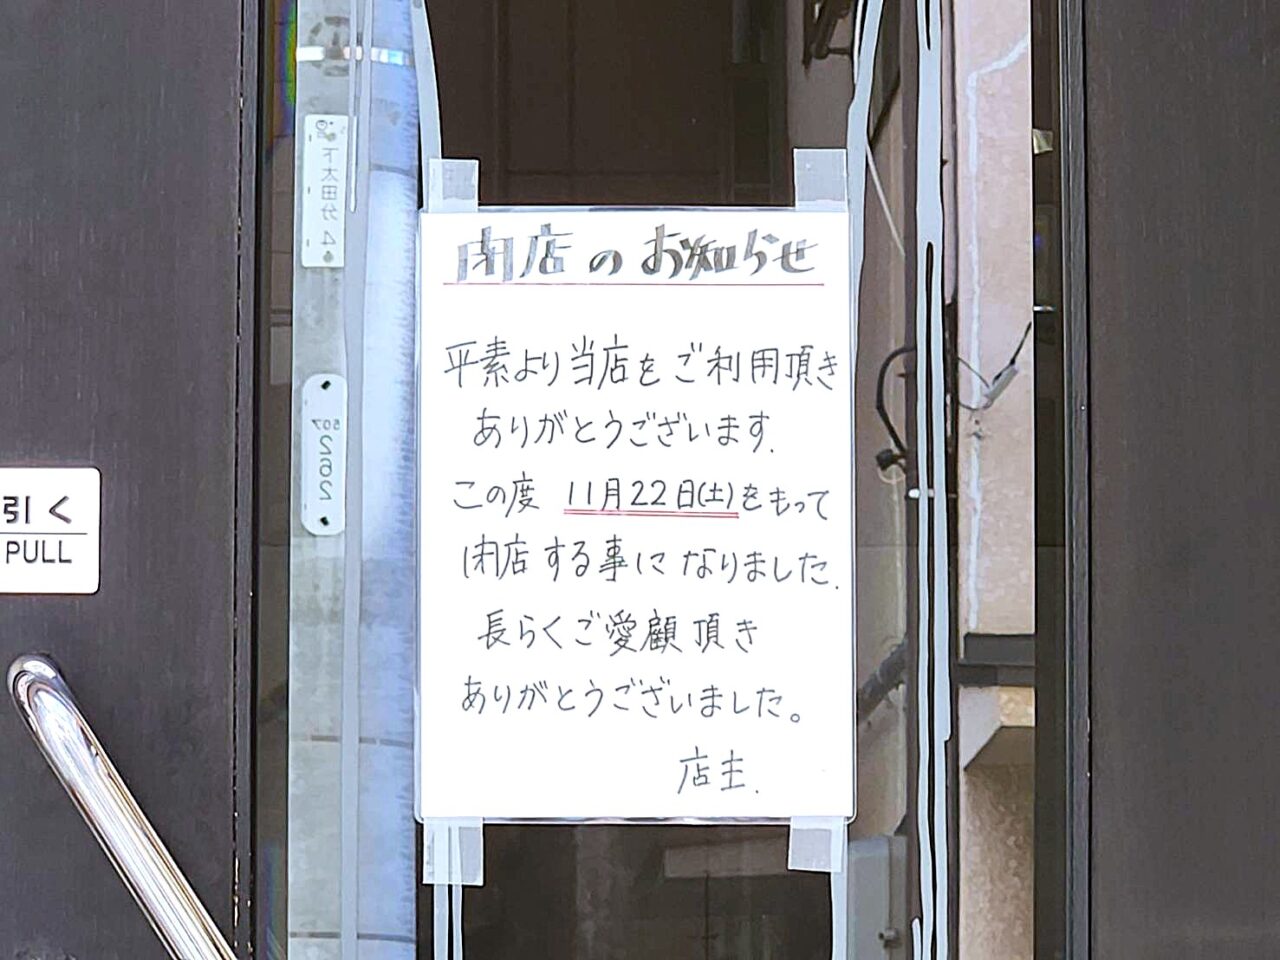 閉店のお知らせ
平素より当店をご利用頂き
ありがとうございます.
この度 11月22日(土)をもって
閉店する事になりました.
長らくご愛顧頂き
ありがとうございました。
店主.
引く
PULL
下太田分 4
507
2262